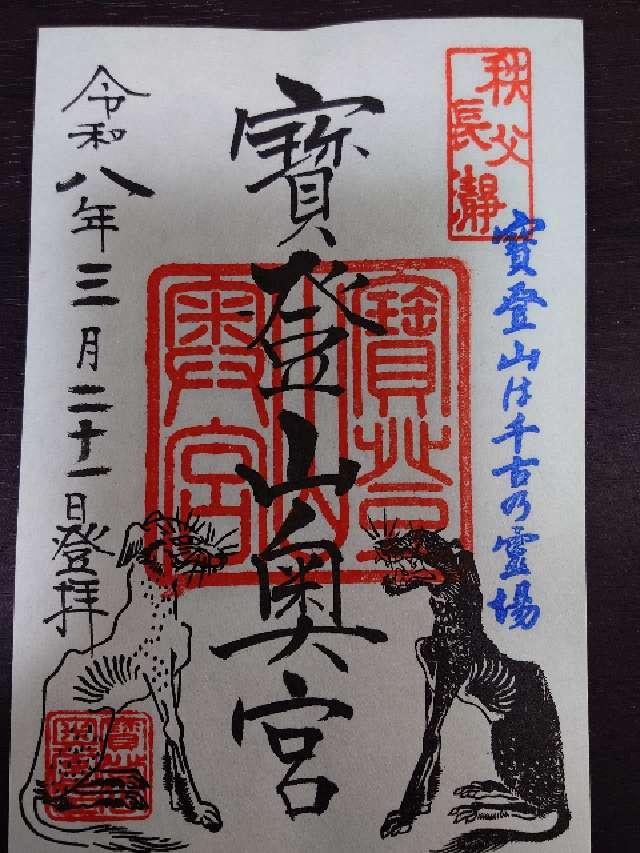 秩父
長瀞
寶登山は千古の霊場
寶登山奥宮
令和八年三月二十一日登拝